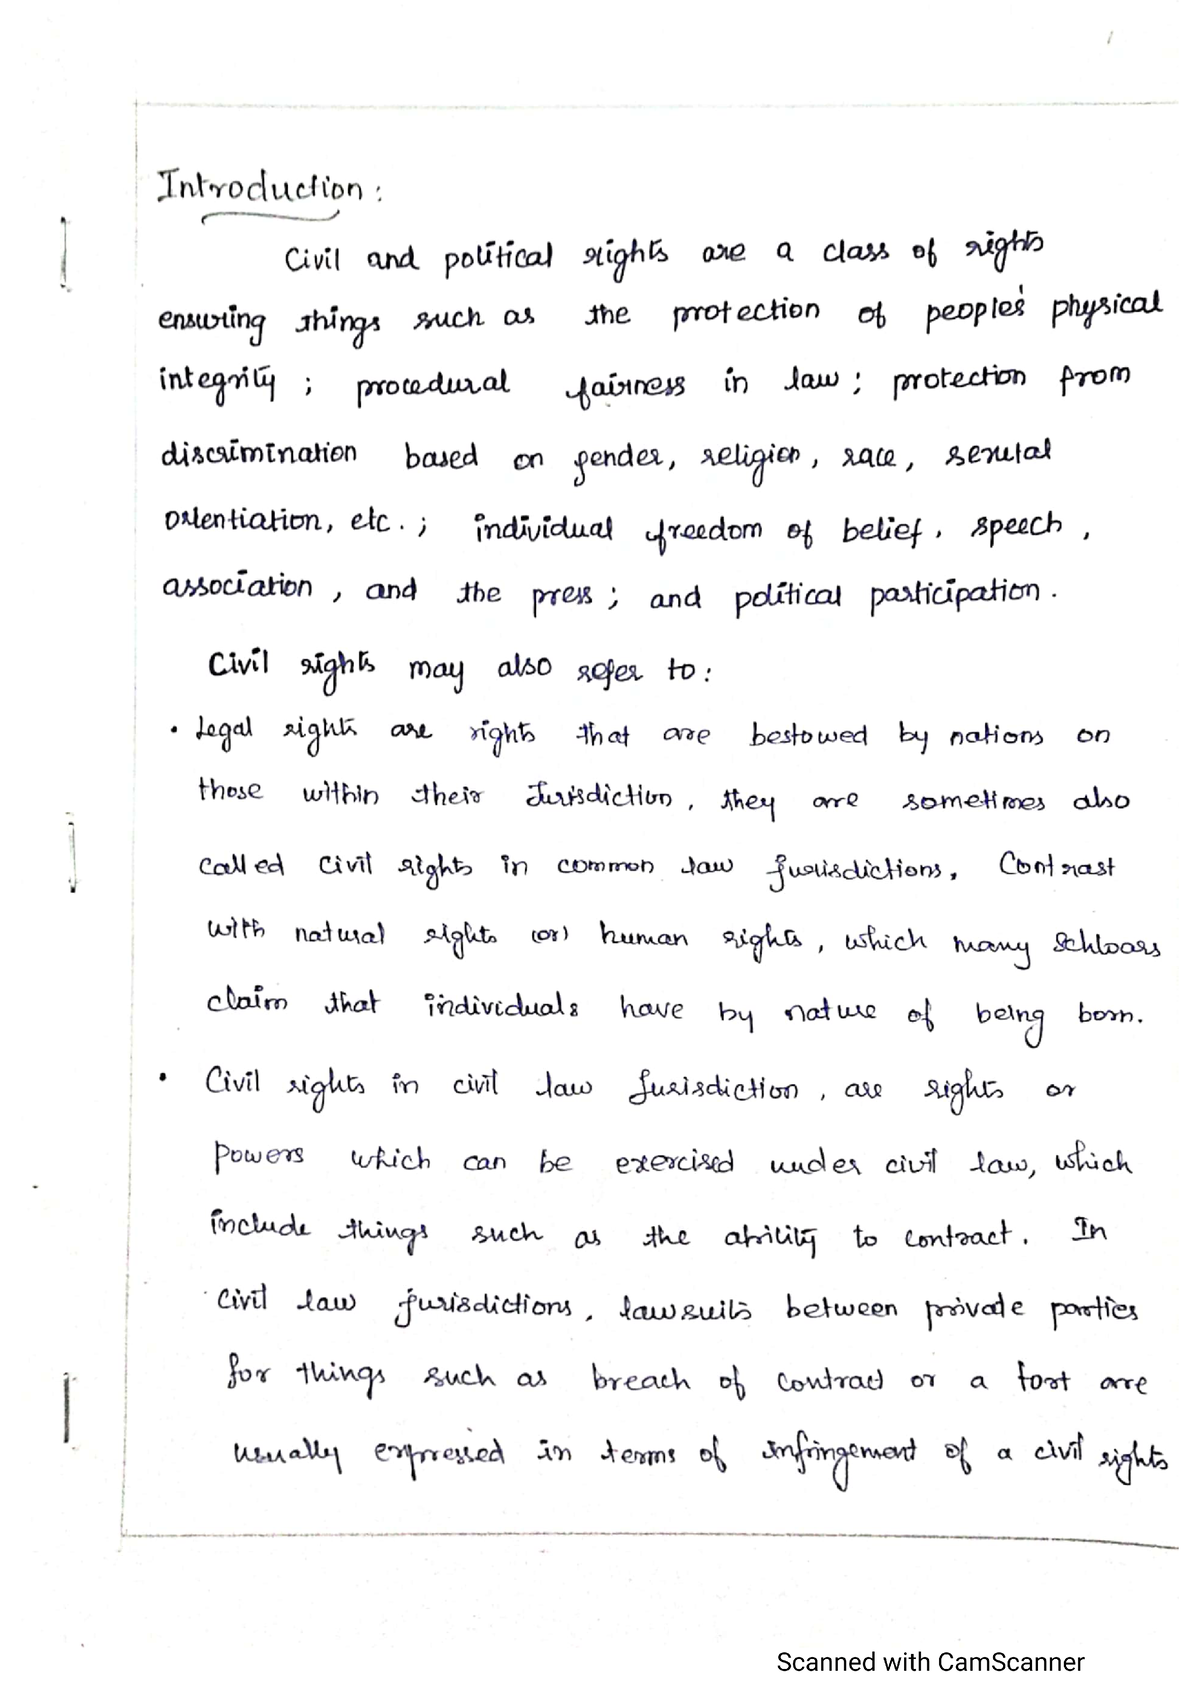 Introduction:
Civil and political rights are a class of rights
ensuring things such as the protection of people's physical
integrity; procedural fairness in law; protection from
discrimination based on gender, religion, race, sexutal
orientiation, etc.; individual freedom of belief, speech,
association, and the press; and political participation.
Civil rights may also refer to:
• Legal rights are rights that are bestowed by nations on
those within their Jurisdiction, they are sometimes also
called civil rights in common law jurisdictions, Contrast
with natural rights (or) human rights, which many schloars
claim that individuals have by nature of being born.
• Civil rights in civil law jurisdiction, are rights or
powers which can be exercised under civil law, which
include things such as the ability to contract. In
civil law jurisdictions, lawsuits between private parties
for things such as breach of contract or a tort are
usually expressed in terms of infringement of a civil rights
Scanned with CamScanner